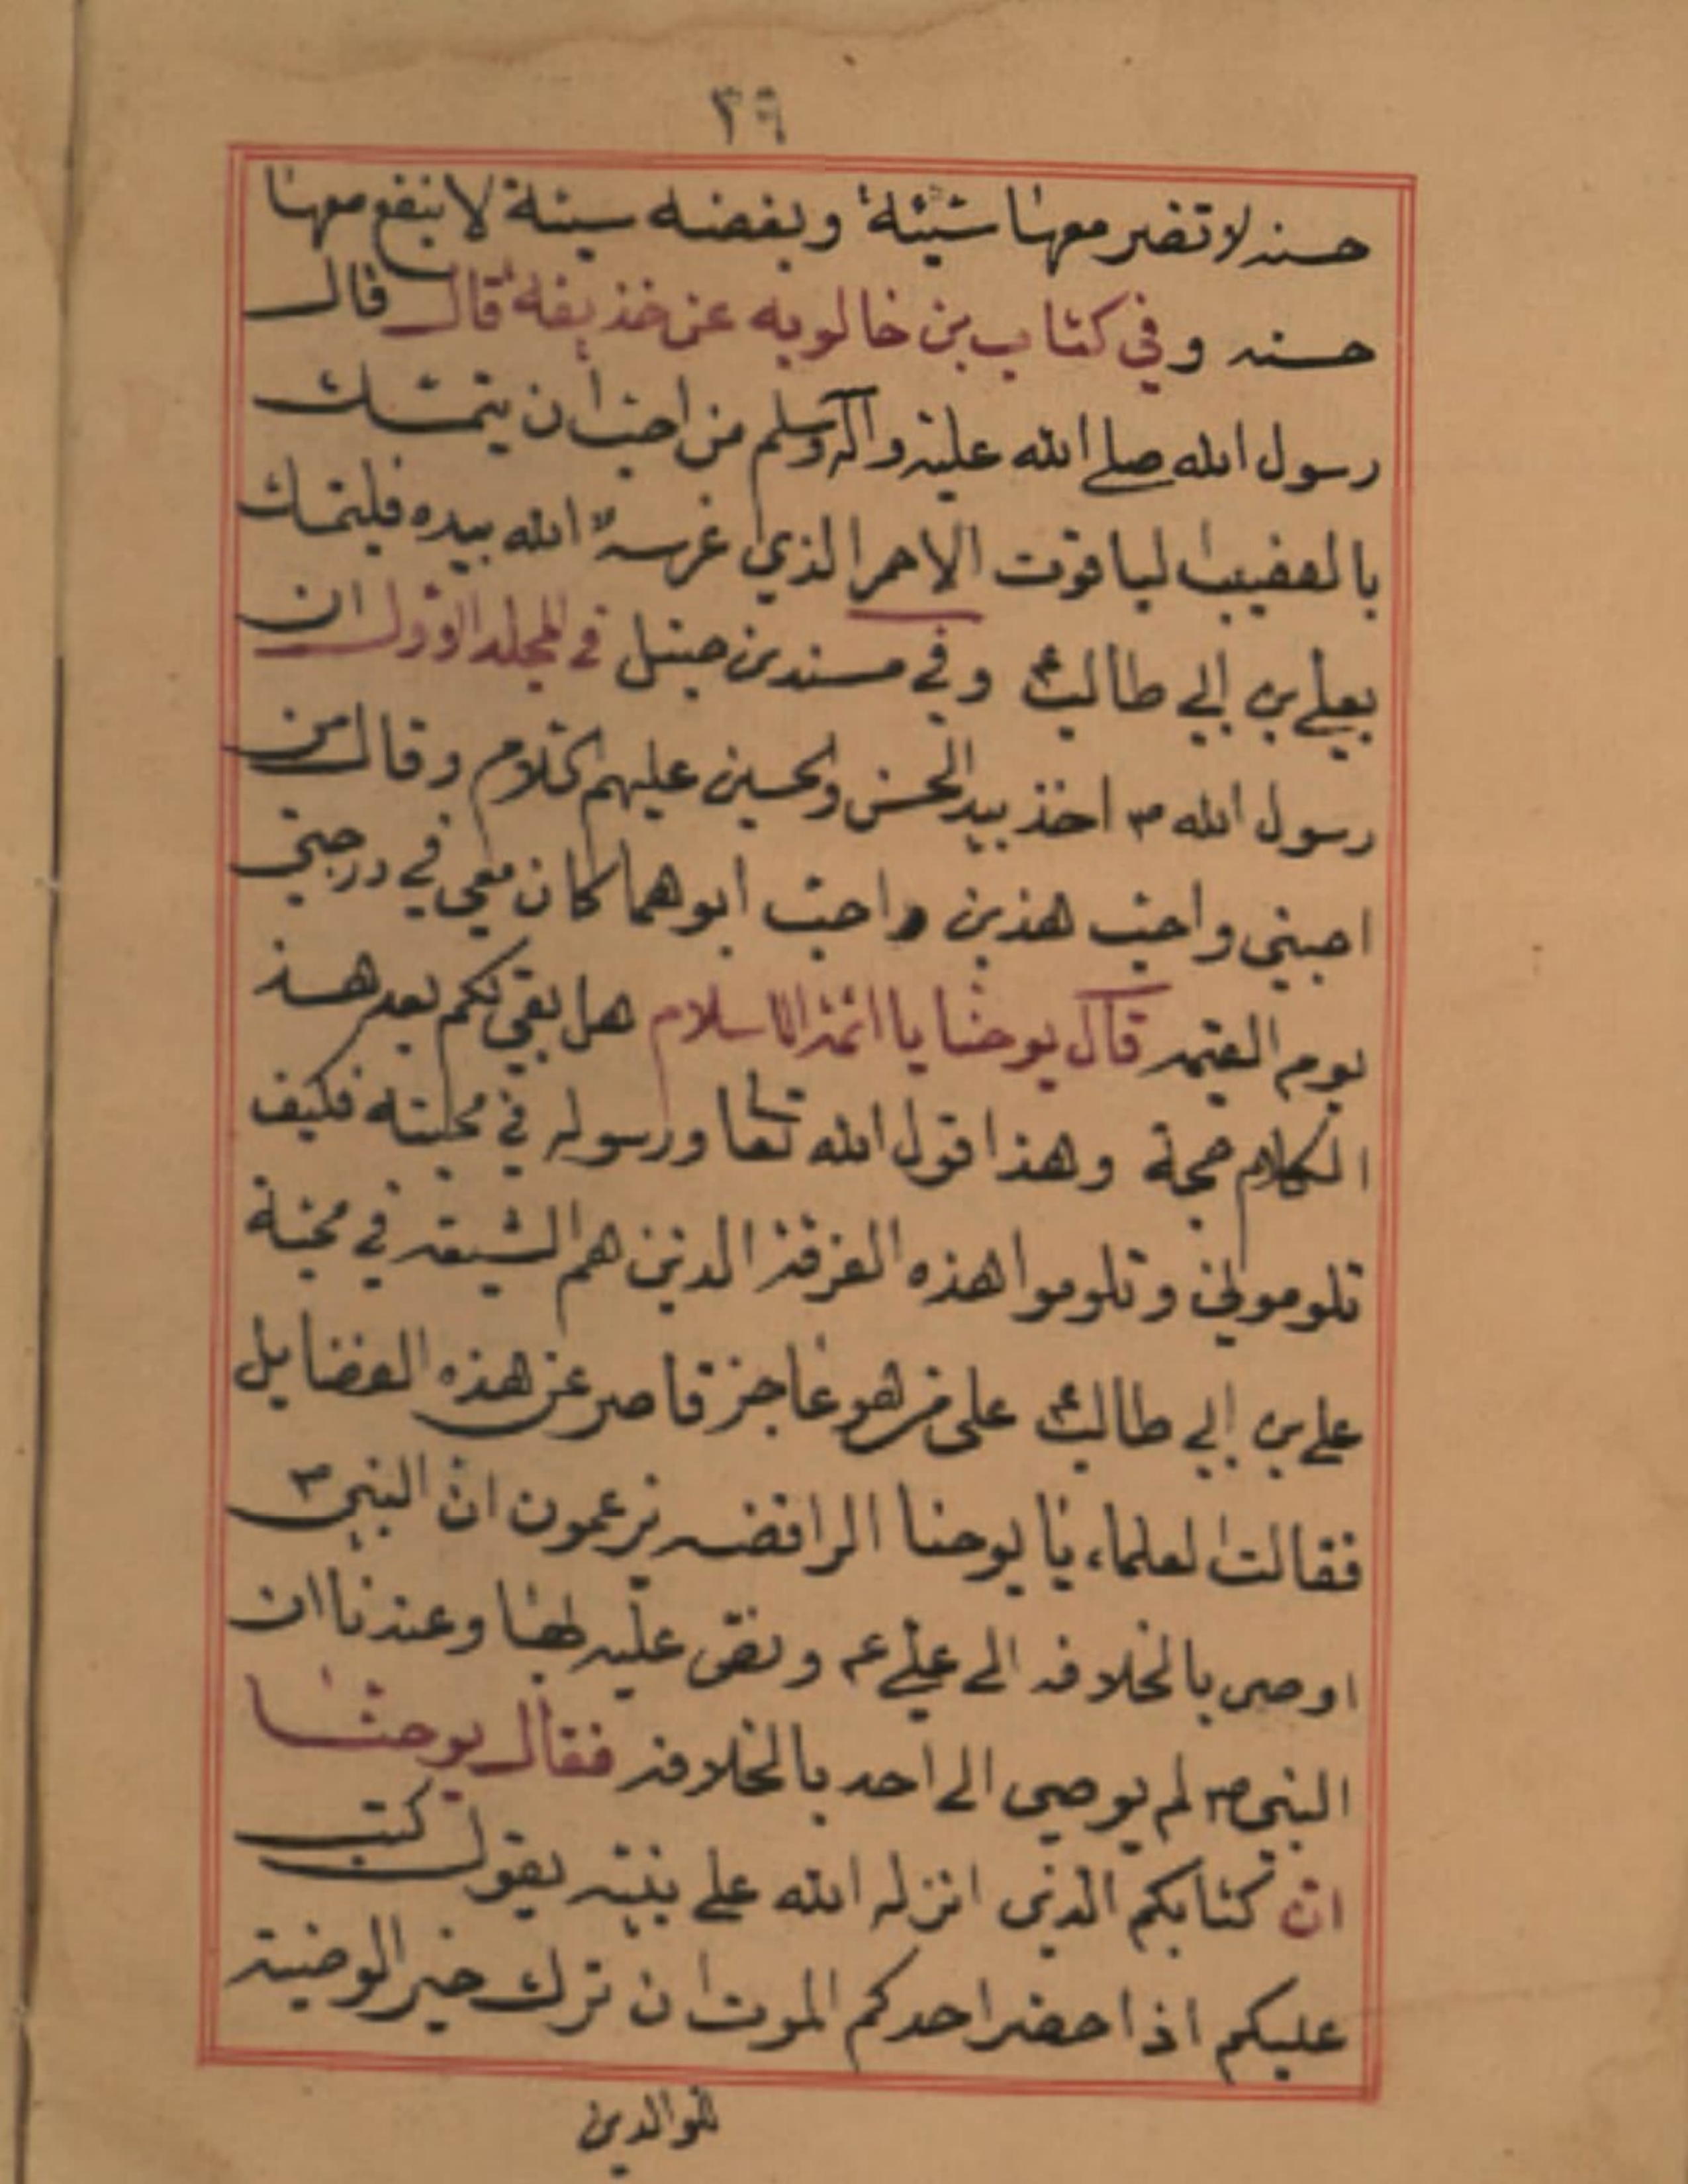 ٣٩
حسنه لا تضر معها شيئة وبغضه سيئة لا ينفع معها
حسنه وفي كتاب بن خالويه عن خذيفة قال قال
رسول الله صلى الله عليه وآله وسلم من احب أن يتمسك
بالقضيب الياقوت الاحمر الذي غرسه الله بيده فليتمسك
بعلي بن ابي طالب ع وفي مسند بن حنبل في المجلد الاول ان
رسول الله ص اخذ بيد الحسن والحسين عليهم السلام وقال من
احبني واحب هذين واحب ابوهما كان معي في درجتي
يوم القيمه قال يوحنا يا ائمة الاسلام هل بقي لكم بعد هذا
الكلام حجة وهذا قول الله تعا ورسوله في محبته فكيف
تلوموني وتلوموا هذه الفرقة الذين هم الشيعه في محبة
علي بن ابي طالب ع على من هو عاجز قاصر عن هذه الفضايل
فقالت العلماء يا يوحنا الرافضه يزعمون ان النبي ص
اوصى بالخلافه الى علي ع ونص عليه بها وعندنا ان
النبي ص لم يوصي الى احد بالخلافه فقال يوحنا
ان كتابكم الذي انزله الله على نبيه يقول كتب
عليكم اذا حضر احدكم الموت ان ترك خير الوصية
للوالدين